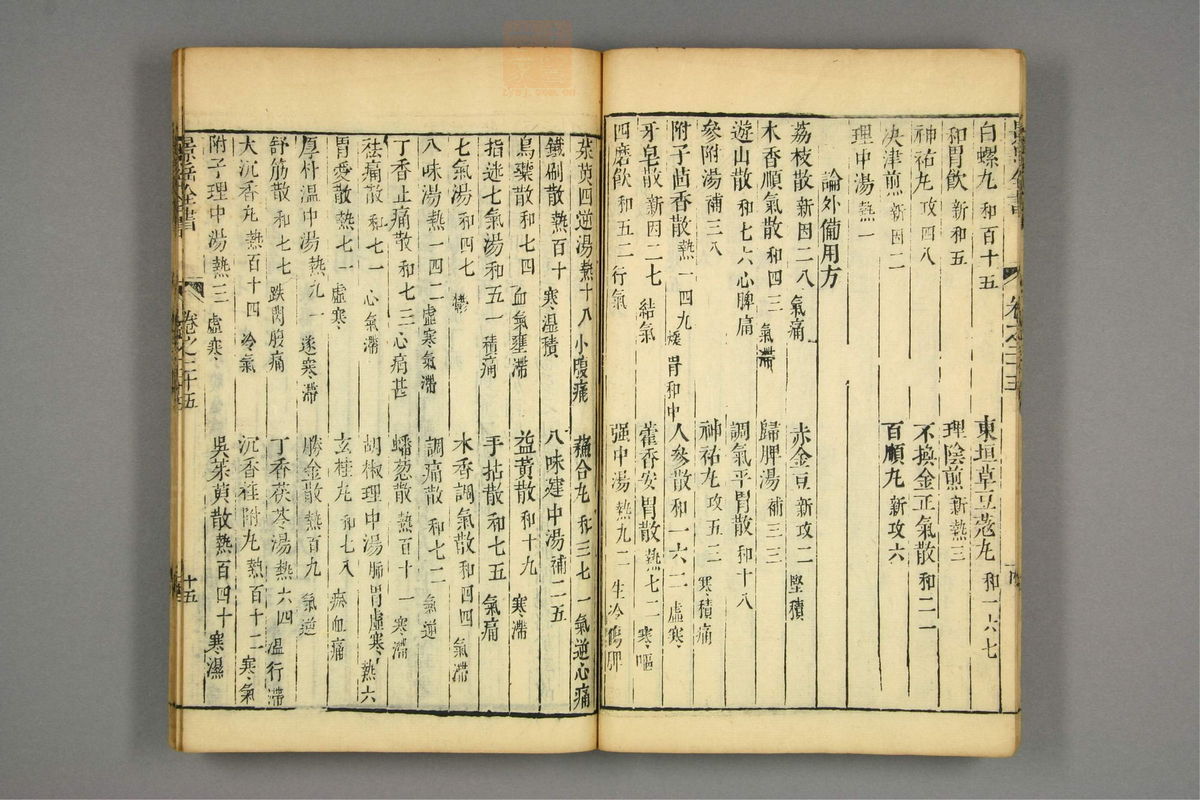 白螺丸 和百十五
東垣草豆蔻丸 和一六七
和胃飲 新和五
理陰煎 新熱三
神祐丸 攻四八
不換金正氣散 和二一
决津煎 新因二
百順丸 新攻六
理中湯 熱一
論外備用方
荔枝散 新因二八 氣痛
赤金豆 新攻二 堅積
木香順氣散 和四三 氣滯
歸脾湯 補三三
遊山散 和七六 心脾痛
調氣平胃散 和十八
參附湯 補三八
神祐丸 攻五三 寒積痛
附子茴香散 熱一四九 煖胃和中
人參散 和一六二 虛寒
牙皂散 新因二七 結氣
藿香安胃散 熱七二 寒嘔
四磨飲 和五二 行氣
强中湯 熱九二 生冷傷脾
茱萸四逆湯 熱十八 小腹痛
蘇合丸 和三七一 氣逆心痛
鐵刷散 熱百十 寒温積
八味建中湯 補二五
烏藥散 和七四 血氣壅滯
益黃散 和十九 寒滯
指迷七氣湯 和五一 積痛
手拈散 和七五 氣痛
七氣湯 和四七 鬱
木香調氣散 和四四 氣滯
八味湯 熱一四二 虛寒氣滯
調痛散 和七二 氣逆
丁香止痛散 和七三 心痛甚
蟠葱散 熱百十一 寒滯
祛痛散 和七一 心氣滯
胡椒理中湯 肺胃虛寒 熱六
胃愛散 熱七一 虛寒
玄桂丸 和七八 瘀血痛
厚朴温中湯 熱九一 逐寒滯
勝金散 熱百九 氣逆
舒筋散 和七七 跌閃腹痛
丁香茯苓湯 熱六四 温行滯
大沉香丸 熱百十四 冷氣
沉香桂附丸 熱百十二 寒氣
附子理中湯 熱二 虛寒
吳茱萸散 熱百四十 寒濕
景岳全書 卷之三十五 十五